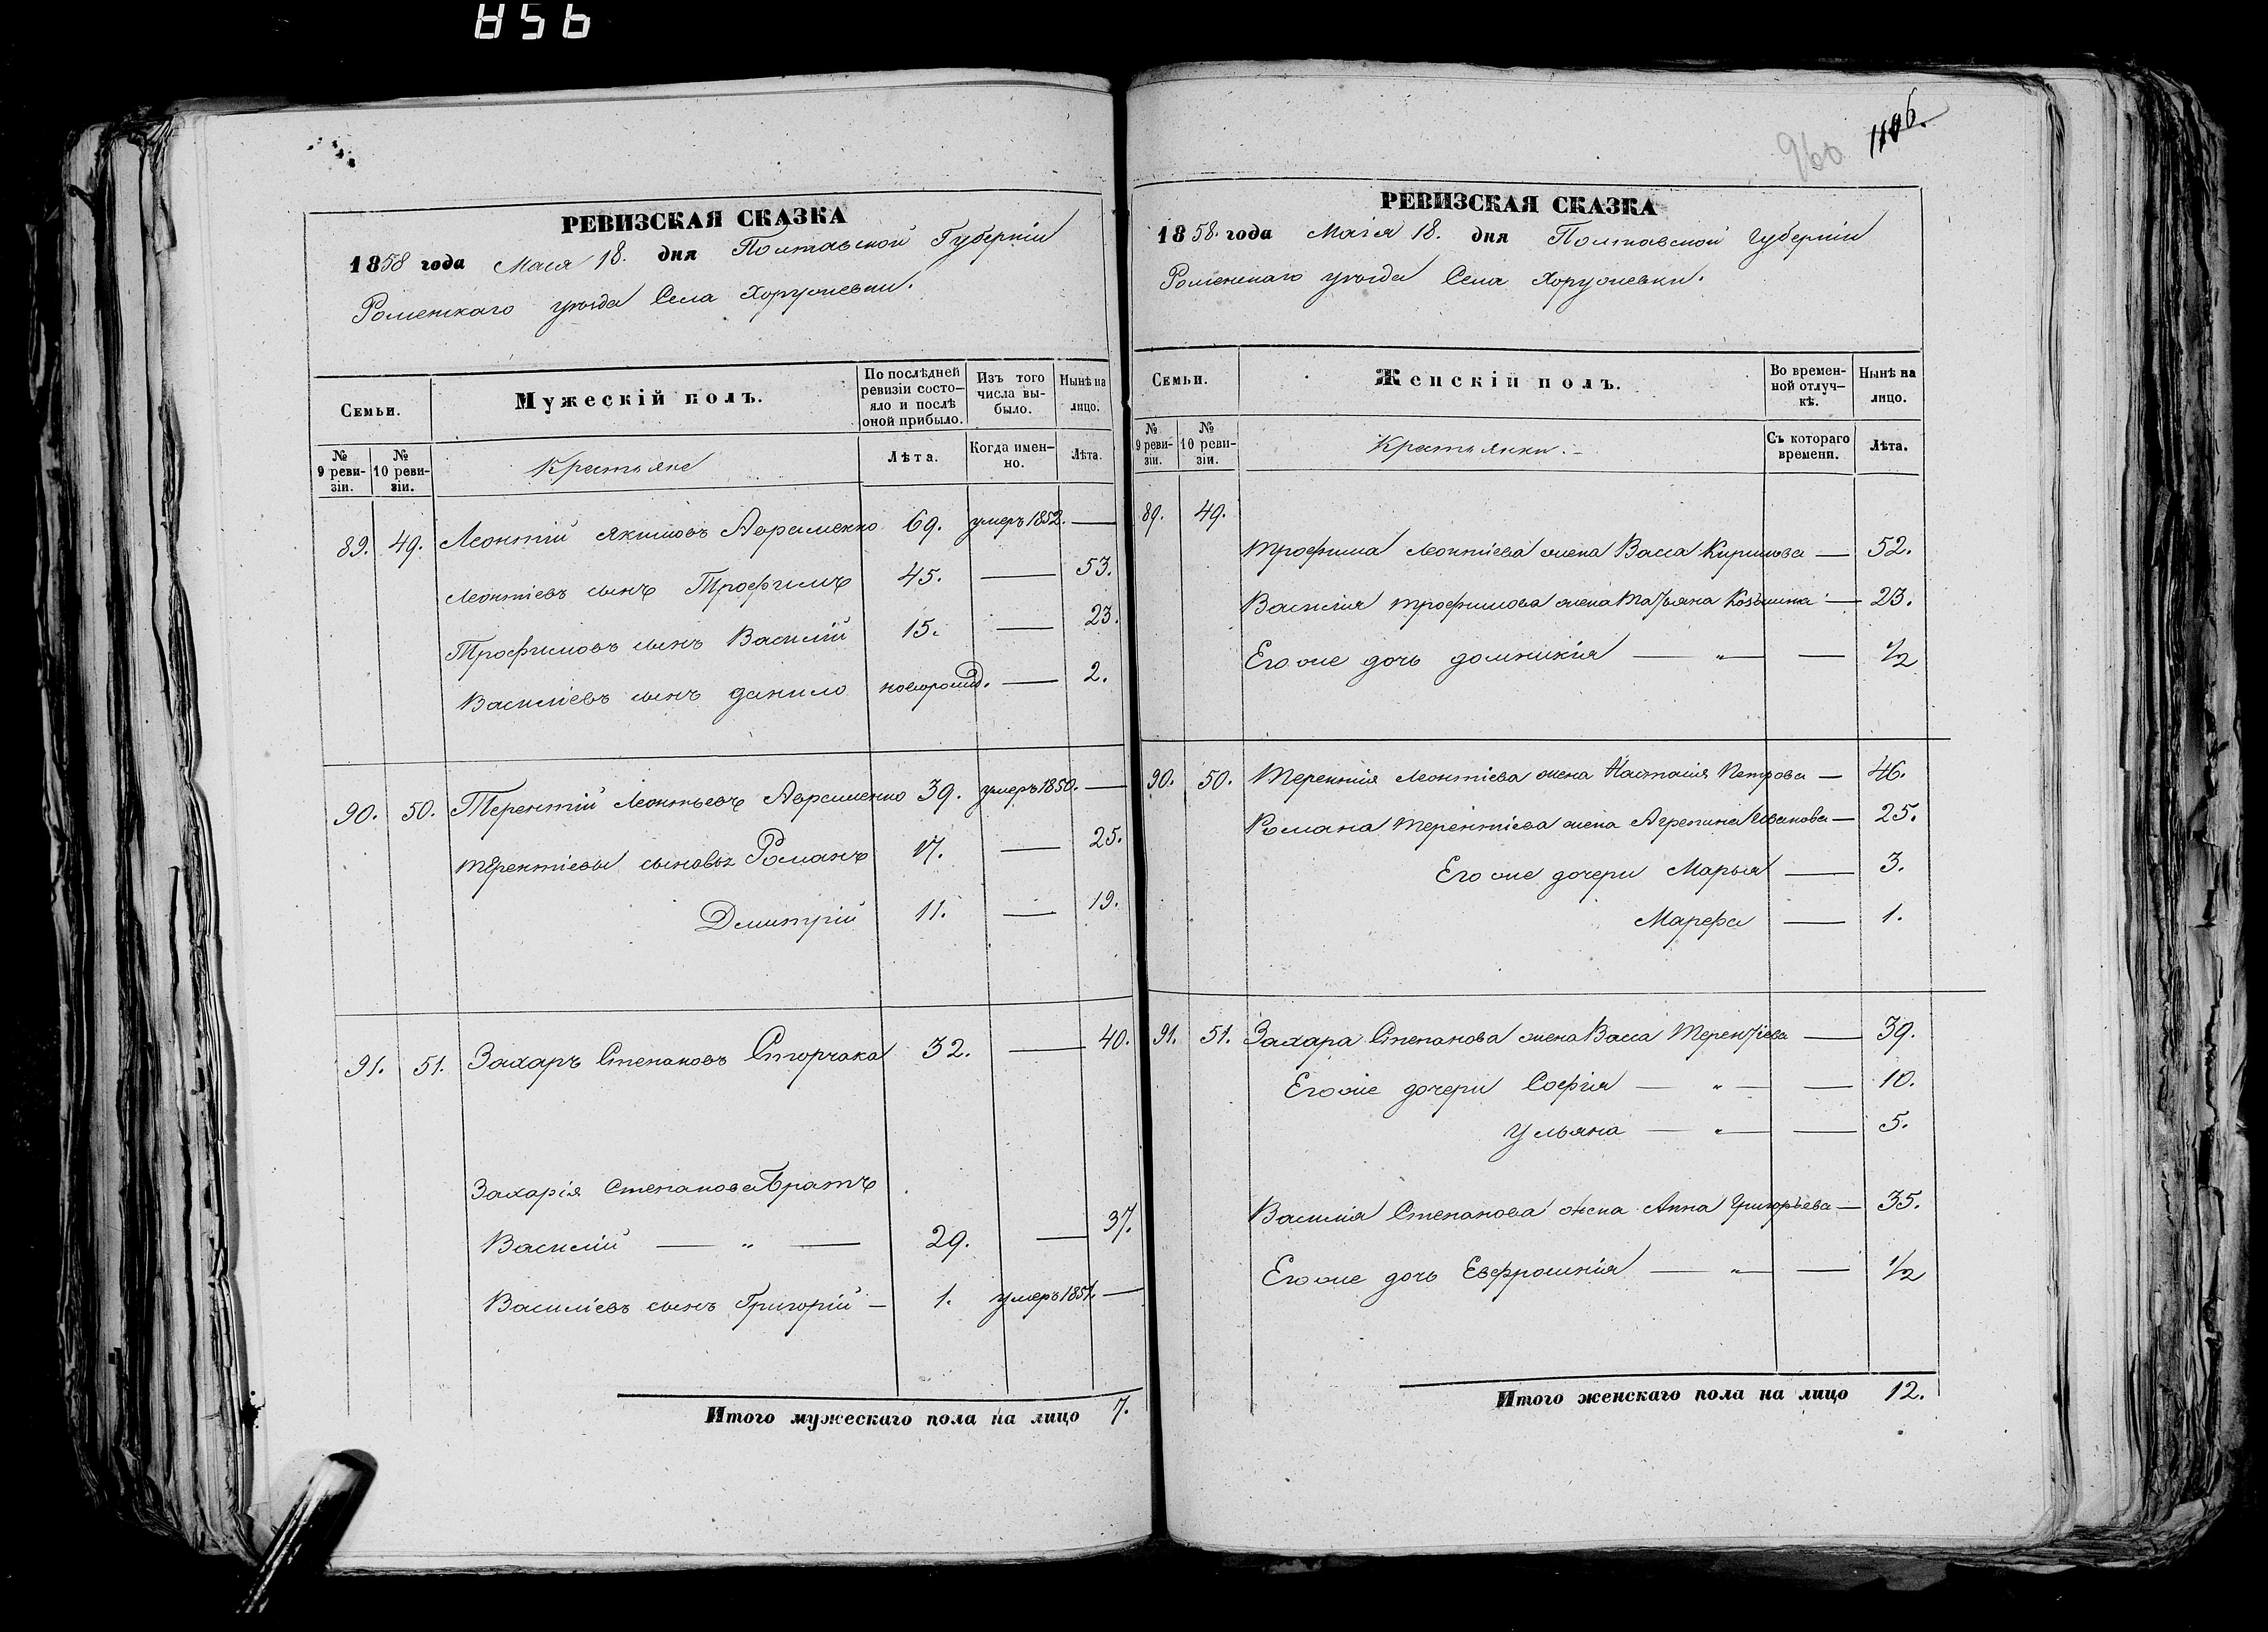 856
РЕВИЗСКАЯ СКАЗКА
1858 года Мая 18. дня Полтавской Губерніи
Роменскаго уѣзда Села Хоружевки.
Семьи.
Мужескій полъ.
По послѣдней ревизіи состояло и послѣ оной прибыло.
Изъ того числа выбыло.
Нынѣ на лицо.
№ 9 ревизіи.
№ 10 ревизіи.
Крестьяне
Лѣта.
Когда именно.
Лѣта.
89. 49. Леонтій Якимовъ Авраменко 69. умеръ 1852. —
Леонтіевъ сынъ Трофимъ 45. — 53.
Трофимовъ сынъ Василій 15. — 23.
Василіевъ сынъ данило новорожд. — 2.
90. 50. Терентій Леонтьевъ Авраменко 39. умеръ 1850. —
терентіевы сыновья Романъ 17. — 25.
Дмитрій 11. — 19.
91. 51. Захаръ Степановъ Сторчака 32. — 40.
Захарія Степанова братъ
Василій — „ — 29. — 37.
Василіевъ сынъ Григорій — 1. умеръ 1851. —
Итого мужескаго пола на лицо 7.
960 1106.
РЕВИЗСКАЯ СКАЗКА
1858. года Мая 18. дня Полтавской Губерніи
Роменскаго уѣзда Села Хоружевки.
Семьи.
Женскій полъ.
Во временной отлучкѣ.
Нынѣ на лицо.
№ 9 ревизіи.
№ 10 ревизіи.
Крестьянки.
Съ котораго времени.
Лѣта.
89. 49.
трофима леонтіева жена Васса Кирилова — 52.
Василія трофимова жена Татьяна — 23.
Его же дочь домникія — „ — — 1/2
90. 50. Терентія Леонтіева жена Настасія Петрова — 46.
Романа терентіева жена Агрепина Иванова — 25.
Его же дочери Марья — 3.
Марефа — 1.
91. 51. Захара Степанова жена Васса Терентіева — 39.
Его же дочери Софія — „ — — 10.
Ульяна — „ — — 5.
Василія Степанова жена Анна Григорьева — 35.
Его же дочь Евфросинія — „ — — 1/2
Итого женскаго пола на лицо 12.